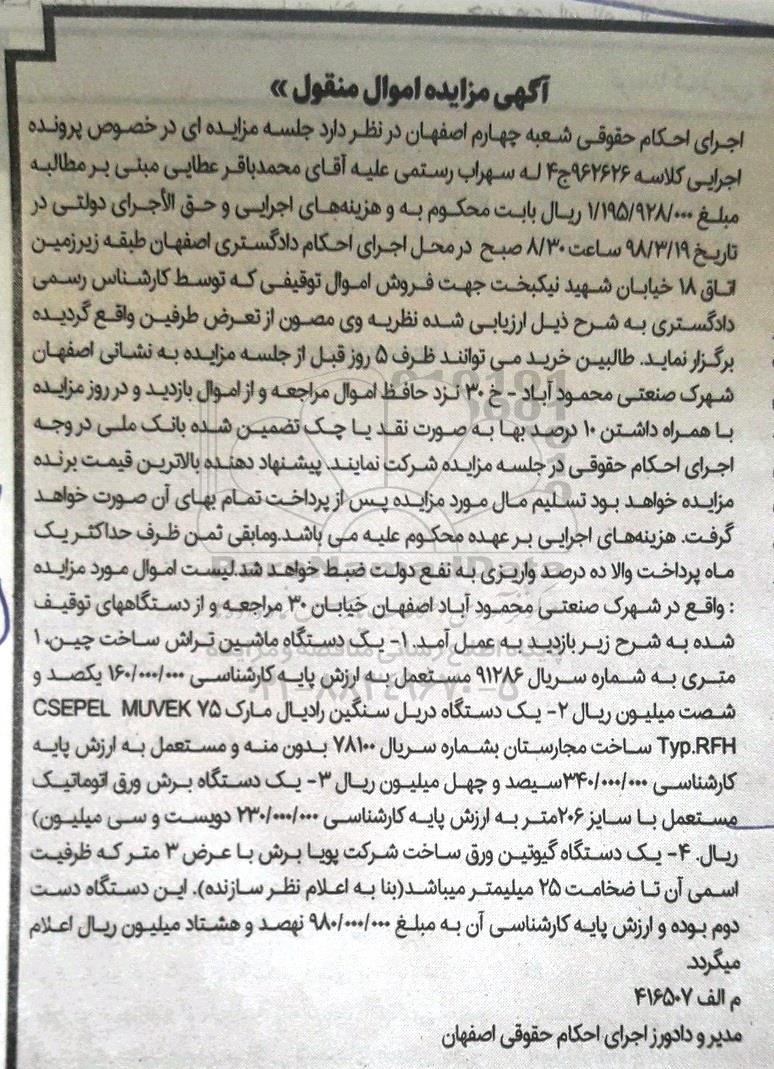 آگهی مزایده اموال منقول »
اجرای احکام حقوقی شعبه چهارم اصفهان در نظر دارد جلسه مزایده ای در خصوص پرونده
اجرایی کلاسه ۹۶۲۶۲۶ج۴ له سهراب رستمی علیه آقای محمدباقر عطایی مبنی بر مطالبه
مبلغ ۱/۱۹۵/۹۲۸/۰۰۰ ریال بابت محکوم به و هزینه‌های اجرایی و حق الأجرای دولتی در
تاریخ ۹۸/۳/۱۹ ساعت ۸/۳۰ صبح در محل اجرای احکام دادگستری اصفهان طبقه زیرزمین
اتاق ۱۸ خیابان شهید نیکبخت جهت فروش اموال توقیفی که توسط کارشناس رسمی
دادگستری به شرح ذیل ارزیابی شده نظریه وی مصون از تعرض طرفین واقع گردیده
برگزار نماید. طالبین خرید می توانند ظرف ۵ روز قبل از جلسه مزایده به نشانی اصفهان
شهرک صنعتی محمود آباد - خ ۳۰ نزد حافظ اموال مراجعه و از اموال بازدید و در روز مزایده
با همراه داشتن ۱۰ درصد بها به صورت نقد یا چک تضمین شده بانک ملی در وجه
اجرای احکام حقوقی در جلسه مزایده شرکت نمایند. پیشنهاد دهنده بالاترین قیمت برنده
مزایده خواهد بود تسلیم مال مورد مزایده پس از پرداخت تمام بهای آن صورت خواهد
گرفت. هزینه‌های اجرایی بر عهده محکوم علیه می باشد.ومابقی ثمن ظرف حداکثر یک
ماه پرداخت والا ده درصد واریزی به نفع دولت ضبط خواهد شد.لیست اموال مورد مزایده
: واقع در شهرک صنعتی محمود آباد اصفهان خیابان ۳۰ مراجعه و از دستگاههای توقیف
شده به شرح زیر بازدید به عمل آمد. ۱- یک دستگاه ماشین تراش ساخت چین، ۱
متری به شماره سریال ۹۱۲۸۶ مستعمل به ارزش پایه کارشناسی ۱۶۰/۰۰۰/۰۰۰ یکصد و
شصت میلیون ریال ۲- یک دستگاه دریل سنگین رادیال مارک CSEPEL MUVEK ۷۵
Typ.RFH ساخت مجارستان بشماره سریال ۷۸۱۰۰ بدون منه و مستعمل به ارزش پایه
کارشناسی ۳۴۰/۰۰۰/۰۰۰سیصد و چهل میلیون ریال ۳- یک دستگاه برش ورق اتوماتیک
مستعمل با سایز ۲۰۶متر به ارزش پایه کارشناسی ۲۳۰/۰۰۰/۰۰۰ دویست و سی میلیون)
ریال. ۴- یک دستگاه گیوتین ورق ساخت شرکت پویا برش با عرض ۳ متر که ظرفیت
اسمی آن تا ضخامت ۲۵ میلیمتر میباشد(بنا به اعلام نظر سازنده). این دستگاه دست
دوم بوده و ارزش پایه کارشناسی آن به مبلغ ۹۸۰/۰۰۰/۰۰۰ نهصد و هشتاد میلیون ریال اعلام
میگردد.
م الف ۴۱۶۵۰۷
مدیر و دادورز اجرای احکام حقوقی اصفهان